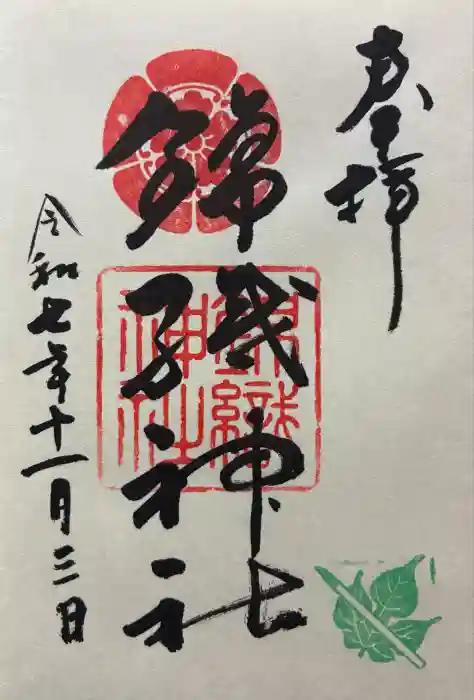 奉拝
錦織神社
錦織
神社
令和七年十一月三日